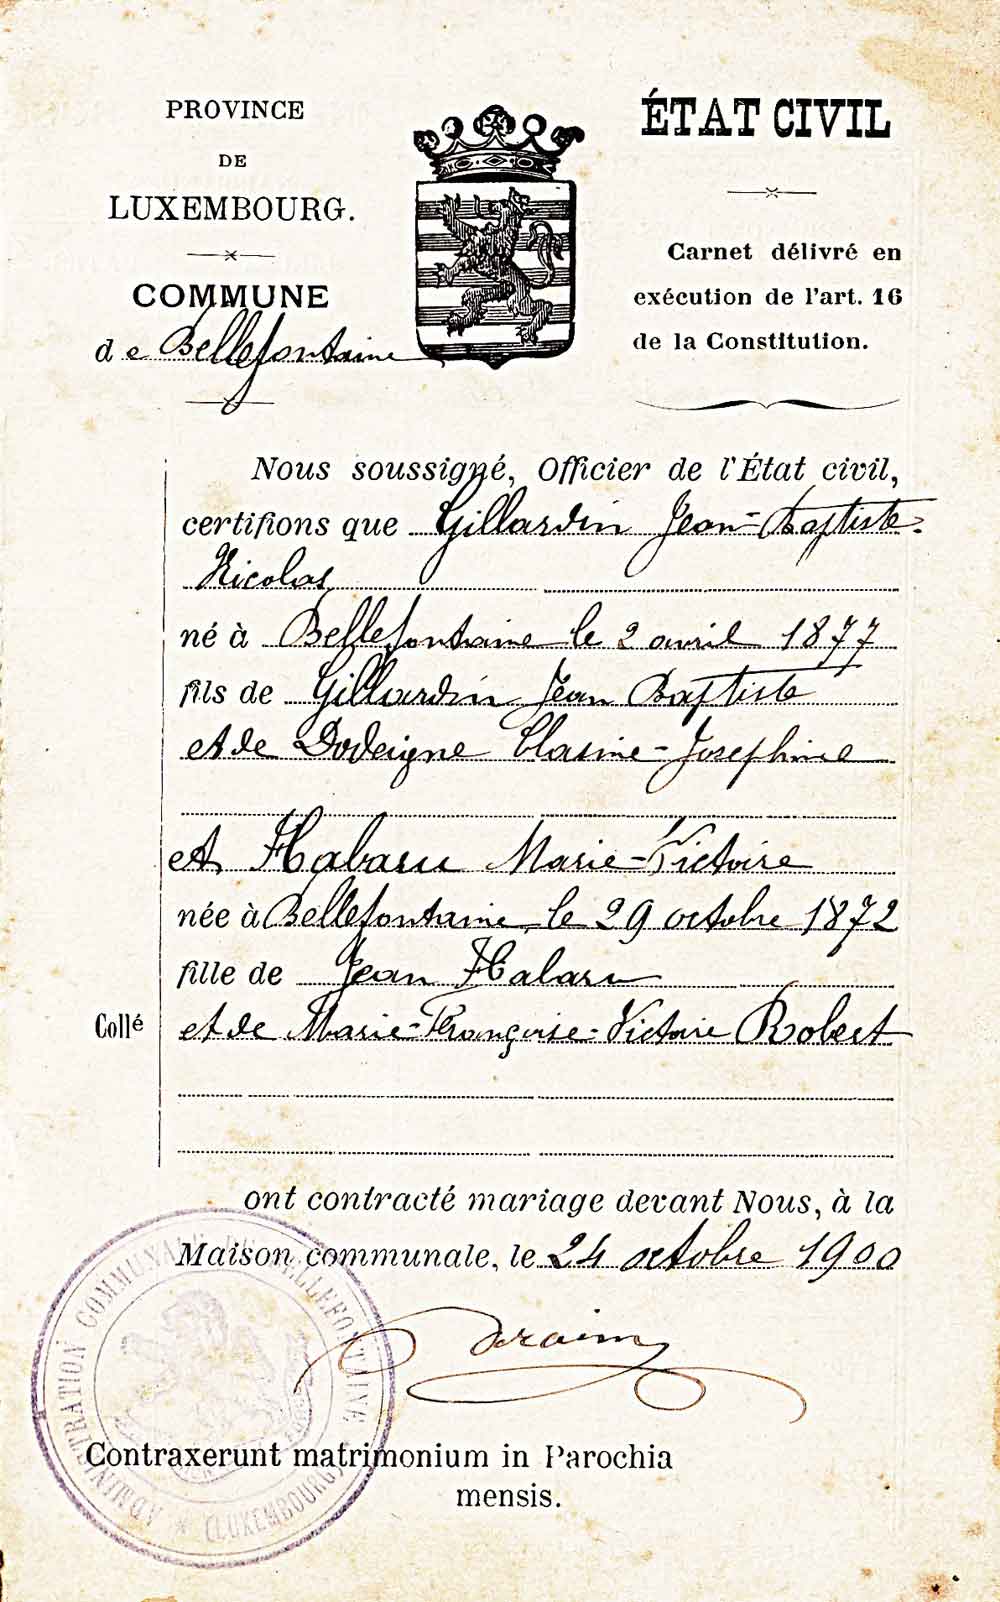 PROVINCE
DE
LUXEMBOURG.
COMMUNE
de Bellefontaine
ÉTAT CIVIL
Carnet délivré en
exécution de l'art. 16
de la Constitution.
Nous soussigné, Officier de l'État civil,
certifions que Gillardin Jean-Baptiste-
Nicolas
né à Bellefontaine le 2 avril 1877
fils de Gillardin Jean Baptiste
et de Dodeigne Clasine-Josephine
et Habaru Marie-Victoire
née à Bellefontaine, le 29 octobre 1872
fille de Jean Habaru
Collé
et de Marie-Françoise-Victoire Robert
ont contracté mariage devant Nous, à la
Maison communale, le 24 octobre 1900
ADMINISTRATION COMMUNALE DE BELLEFONTAINE
(LUXEMBOURG)
Contraxerunt matrimonium in Parochia
mensis.